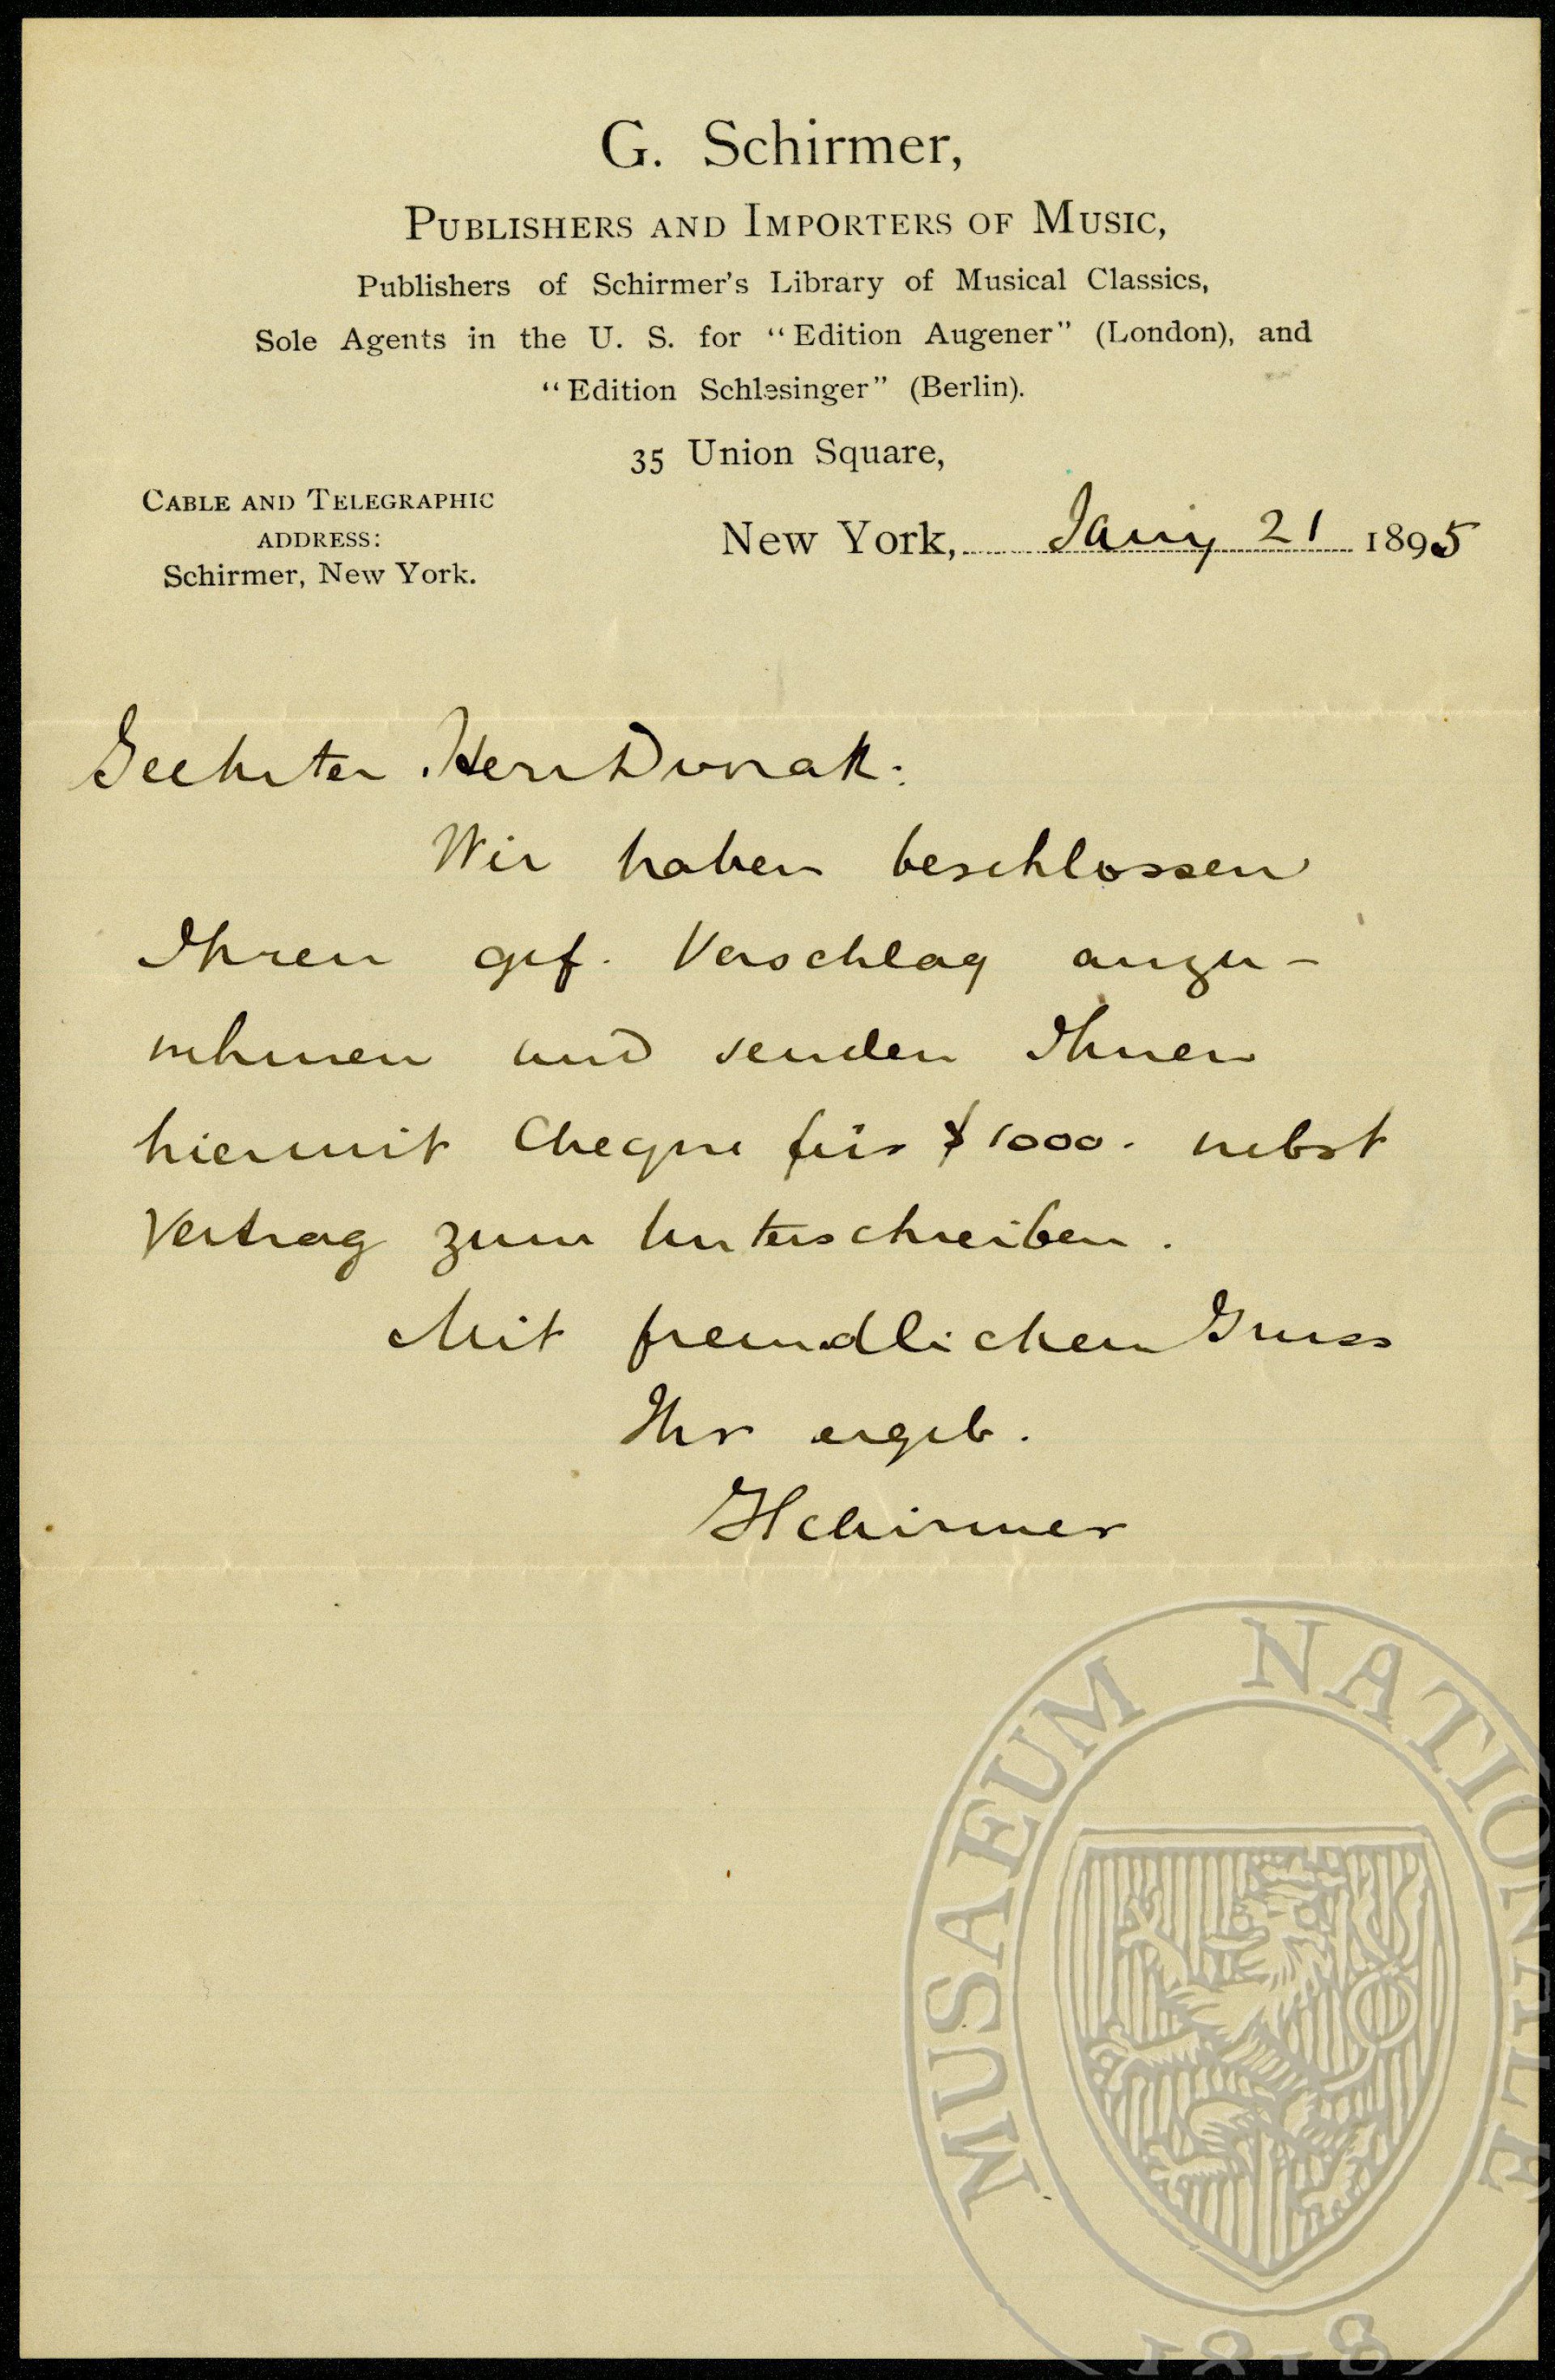 G. Schirmer,
PUBLISHERS AND IMPORTERS OF MUSIC,
Publishers of Schirmer's Library of Musical Classics,
Sole Agents in the U. S. for "Edition Augener" (London), and
"Edition Schlesinger" (Berlin).
35 Union Square,
CABLE AND TELEGRAPHIC
ADDRESS:
Schirmer, New York.
New York, Jany 21 1895
Geehrter Herr Dvorak:
Wir haben beschlossen
Ihren gef. Vorschlag anzu-
nehmen und senden Ihnen
hiermit Cheque für $1000. nebst
Vertrag zum Unterschreiben.
Mit freundlichem Gruss
Ihr ergeb.
GSchirmer
MUSAEUM NATIONALE
1818